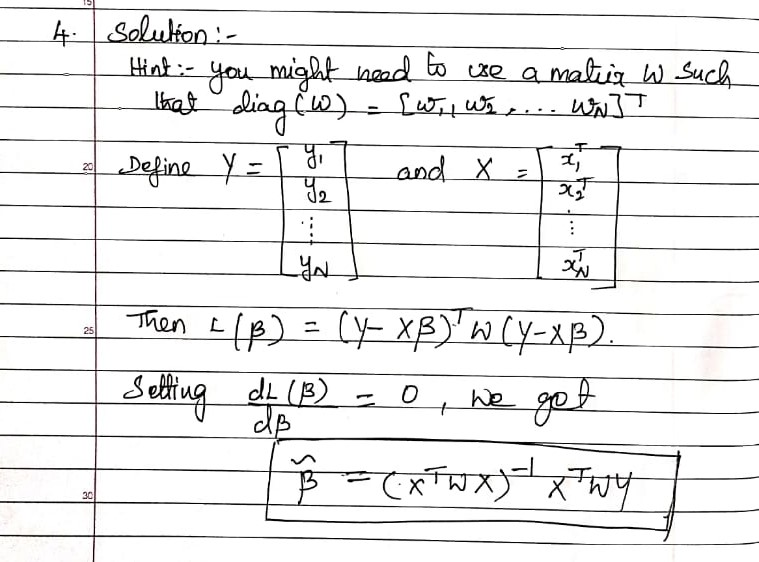 4. Solution:-
Hint:- you might need to use a matrix W such
that diag(w) = [w₁, w₂, .... wN]ᵀ
Define Y = [ y₁ y₂ ⋮ yN ] and X = [ x₁ᵀ x₂ᵀ ⋮ xNᵀ ]
Then L(β) = (Y- Xβ)ᵀ W (Y-Xβ).
Setting dL(β)/dβ = 0, we got
β̃ = (XᵀWX)⁻¹ XᵀWY
15
20
25
30